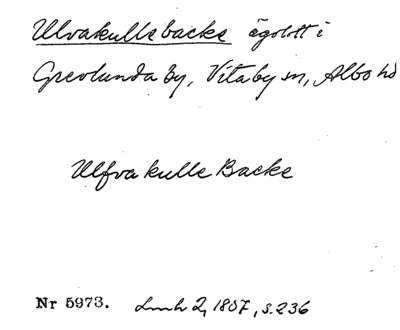 Ulvakullebacke ägolott i
Grevlunda by, Vitaby sn, Albo hd
Ulfva kulle Backe
Nr 5973. Lmh 2, 1807, s. 236